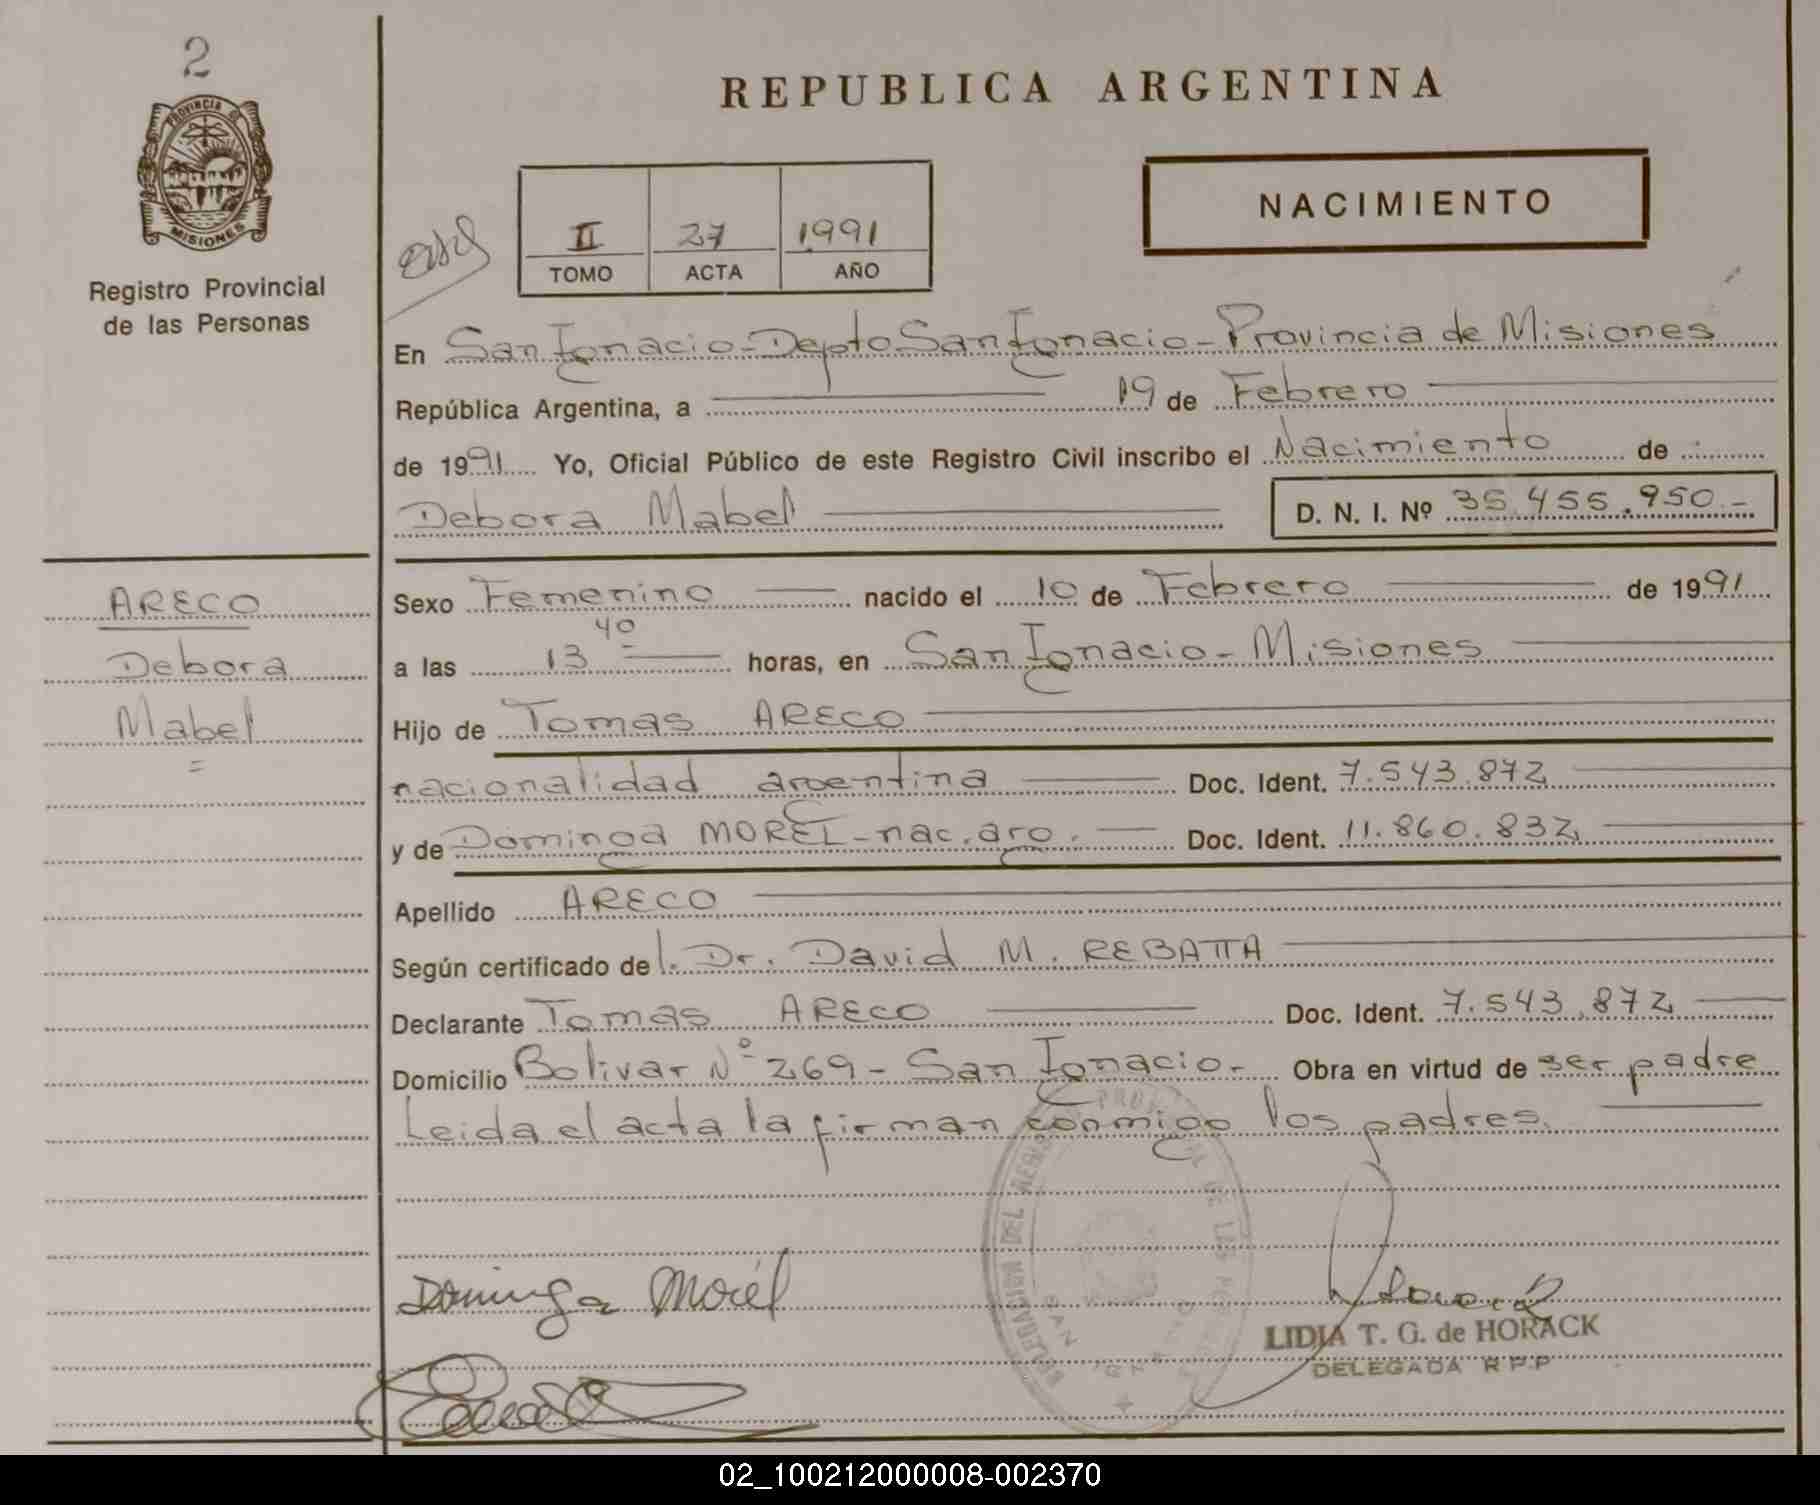 2
PROVINCIA DE
MISIONES
Registro Provincial
de las Personas
REPUBLICA ARGENTINA
NACIMIENTO
II 27 1991
TOMO ACTA AÑO
En San Ignacio - Depto San Ignacio - Provincia de Misiones
República Argentina, a 19 de Febrero
de 1991 Yo, Oficial Público de este Registro Civil inscribo el Nacimiento de
Debora Mabel D. N. I. Nº 35.455.950.-
ARECO
Debora
Mabel
Sexo Femenino nacido el 10 de Febrero de 1991
a las 13 40 horas, en San Ignacio - Misiones
Hijo de Tomas ARECO
nacionalidad argentina Doc. Ident. 7.543.872
y de Dominga MOREL - nac. arg. Doc. Ident. 11.860.832
Apellido ARECO
Según certificado del. Dr. David M. REBATTA
Declarante Tomas ARECO Doc. Ident. 7.543.872
Domicilio Bolivar Nº 269 - San Ignacio - Obra en virtud de ser padre
Leida el acta la firman conmigo los padres.
Dominga Morél
LIDIA T. G. de HORACK
DELEGADA R P P
02_100212000008-002370